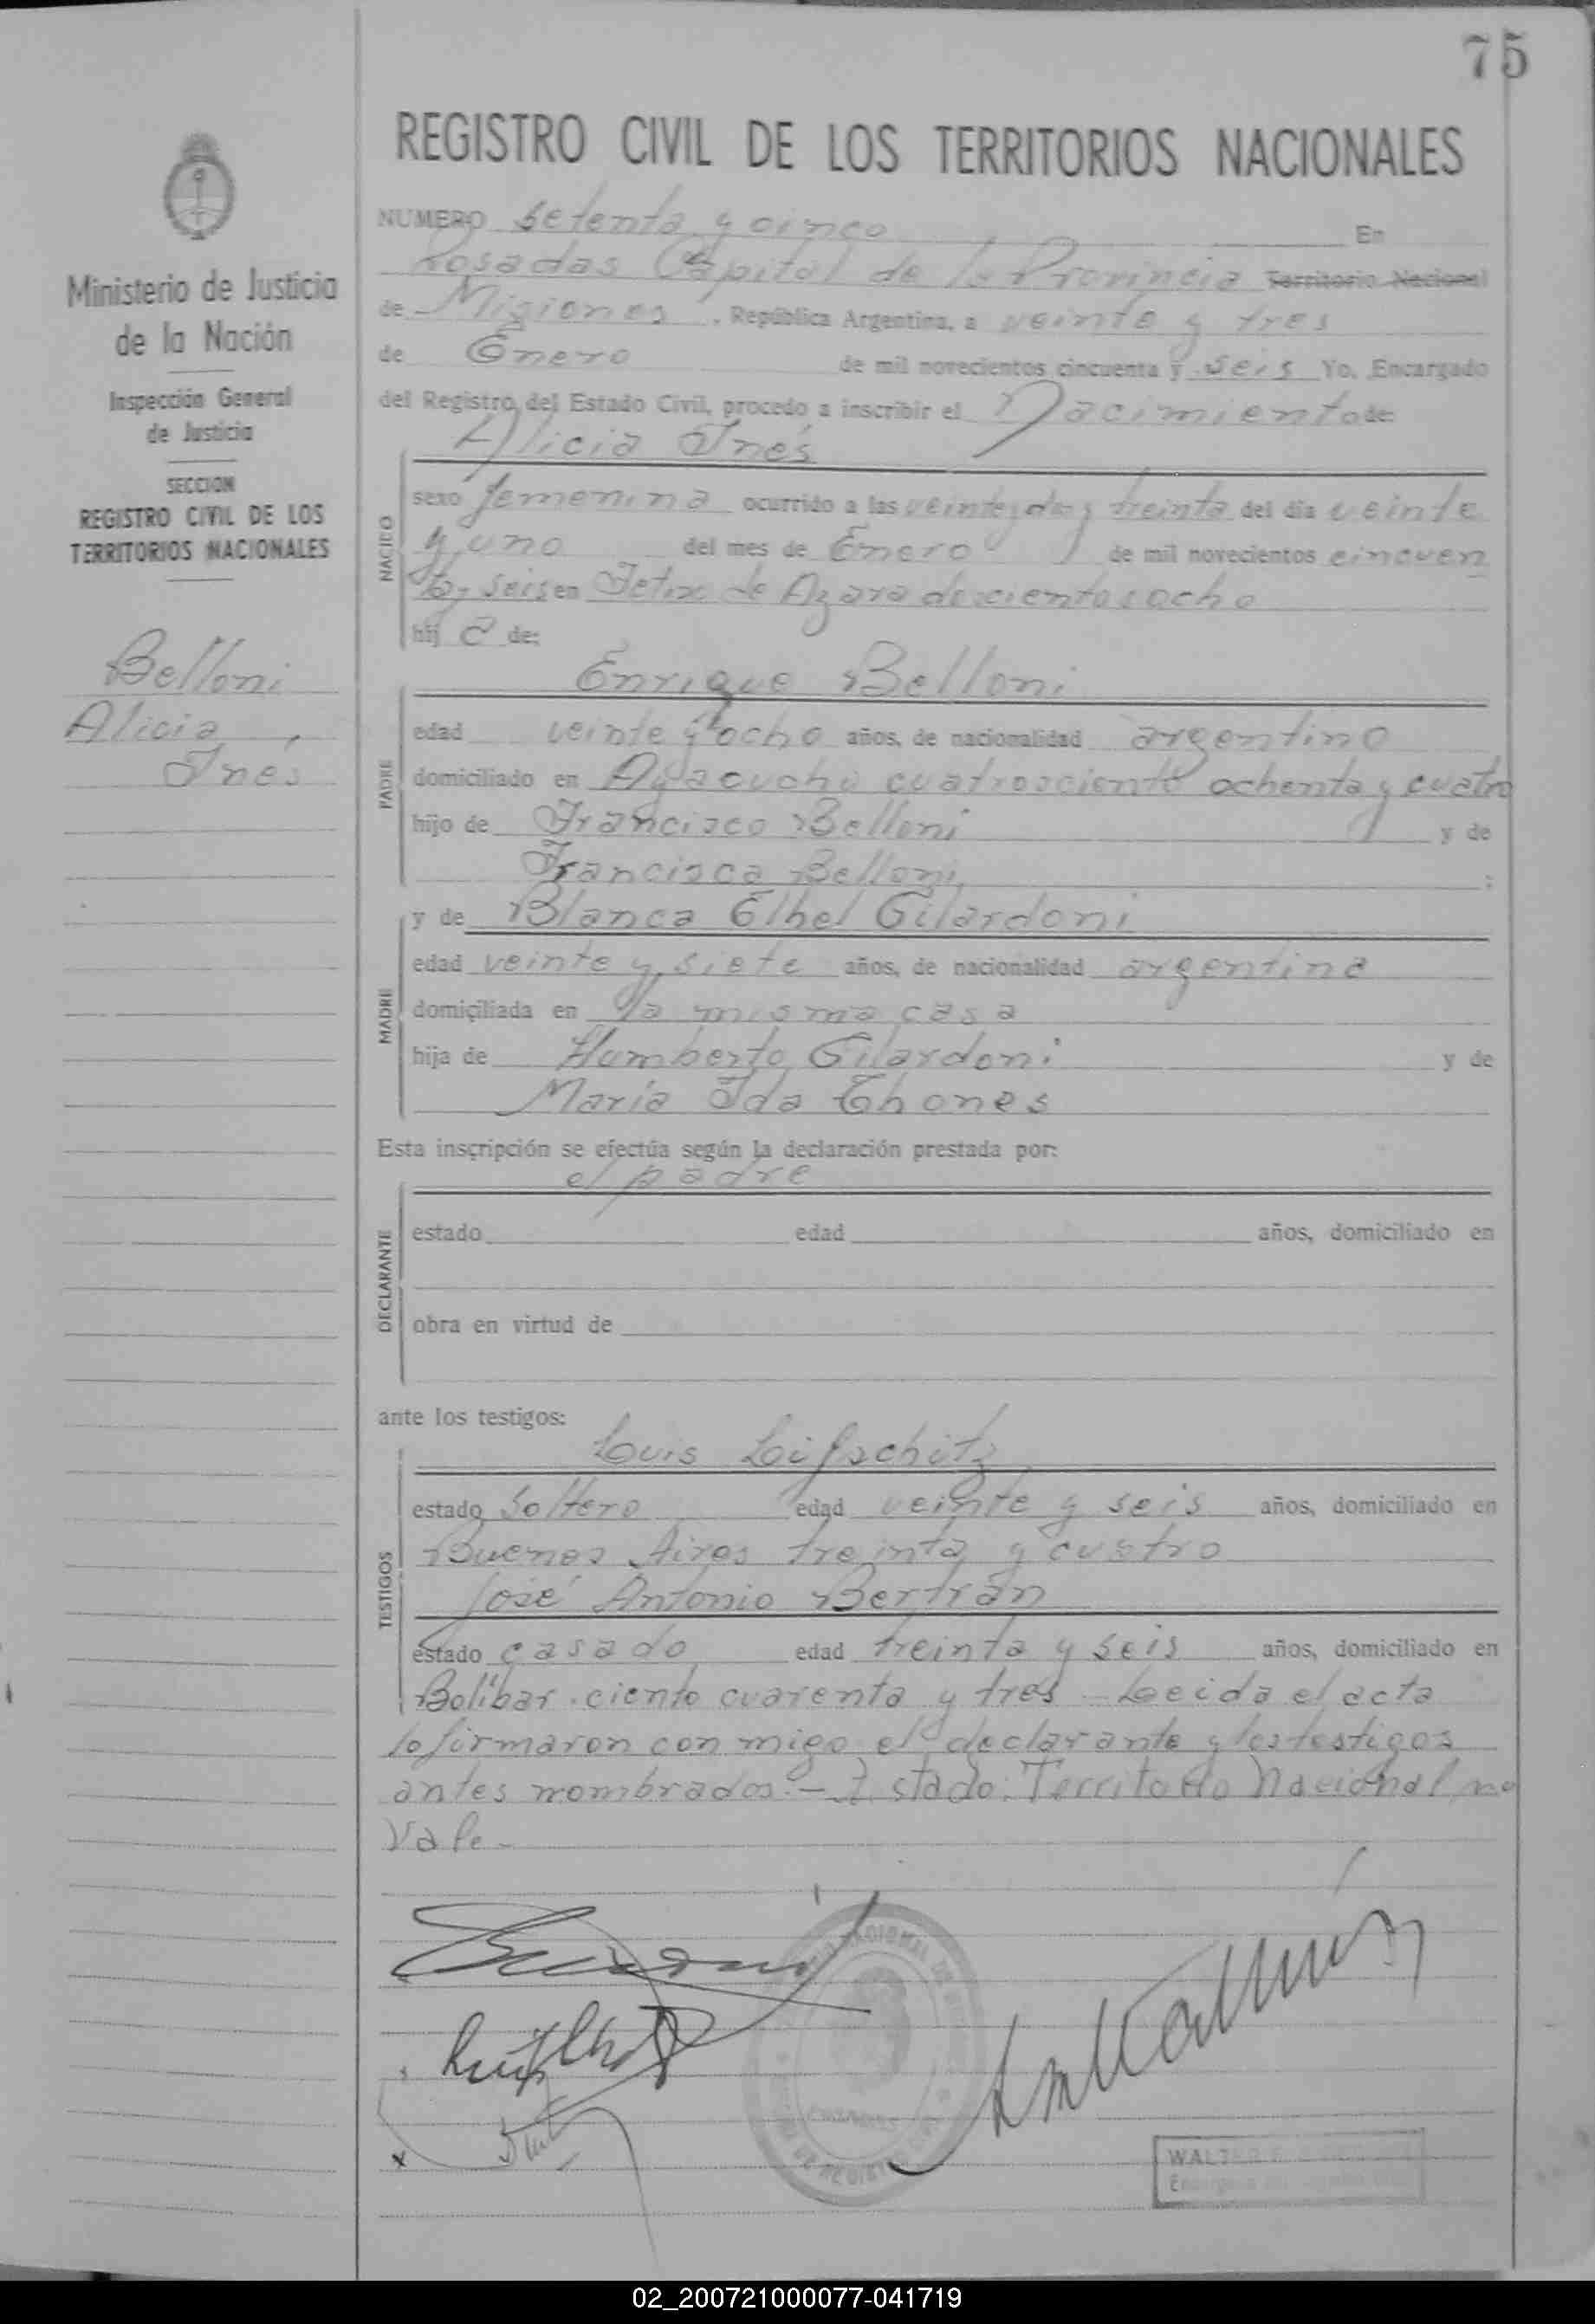 75
REGISTRO CIVIL DE LOS TERRITORIOS NACIONALES
NUMERO setenta y cinco En
Posadas Capital de la Provincia Territorio Nacional
de Misiones, República Argentina, a veinte y tres
de Enero de mil novecientos cincuenta y seis Yo, Encargado
del Registro del Estado Civil, procedo a inscribir el Nacimiento de:
Alicia Inés
NACIDO
sexo femenina ocurrido a las veinte y dos y treinta del día veinte
y uno del mes de Enero de mil novecientos cincuen
ta y seis en de Azara doscientos ocho
hij a de:
Enrique Belloni
PADRE
edad veinte y ocho años, de nacionalidad argentino
domiciliado en Ayacucho cuatrosciento ochenta y cuatro
hijo de Francisco Belloni y de
Francisca Belloni ;
MADRE
y de Blanca Elbel Gilardoni
edad veinte y siete años, de nacionalidad argentina
domiciliada en la misma casa
hija de Humberto Gilardoni y de
María Ida Thones
Esta inscripción se efectúa según la declaración prestada por:
el padre
DECLARANTE
estado edad años, domiciliado en
obra en virtud de
ante los testigos:
Louis Leifschitz
TESTIGOS
estado Soltero edad veinte y seis años, domiciliado en
Buenos Aires treinta y cuatro
José Antonio Bertrán
estado casado edad treinta y seis años, domiciliado en
Bolíbar ciento cuarenta y tres - Leeida el acta
lo firmaron con migo el declarante y los testigos
antes nombrados.- Testado: Territorio Nacional no
Vale-
WALTER
Ministerio de Justicia
de la Nación
Inspección General
de Justicia
SECCION
REGISTRO CIVIL DE LOS
TERRITORIOS NACIONALES
Belloni
Alicia
Ines
02_200721000077-041719